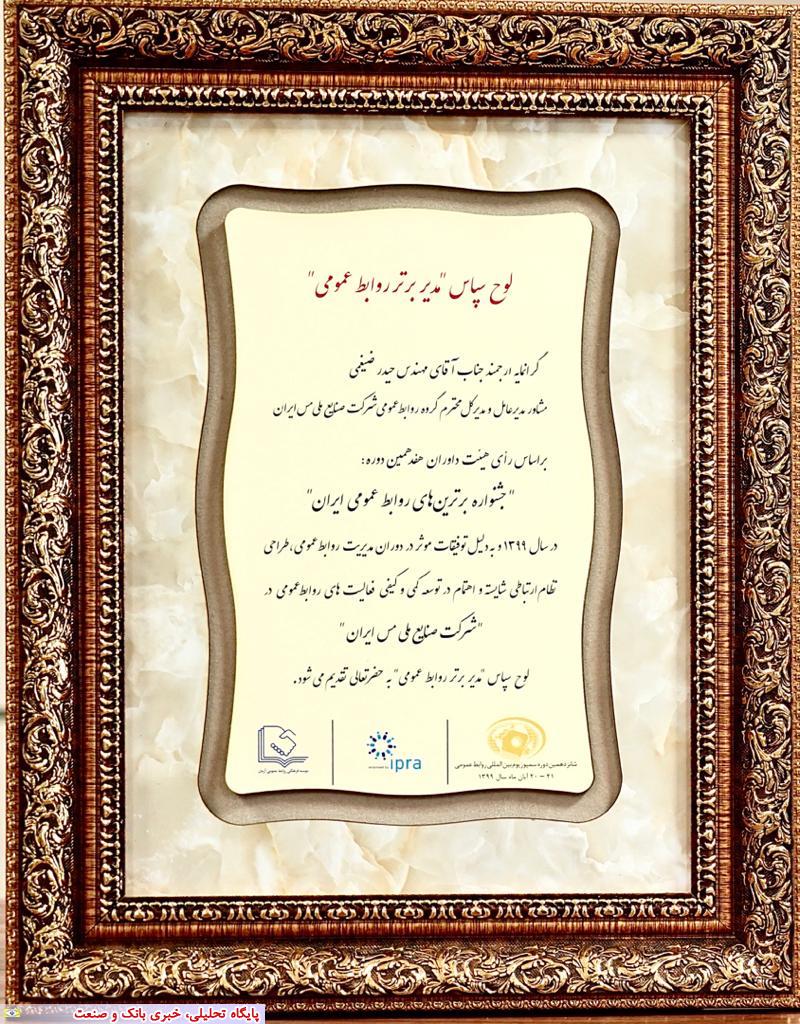 لوح سپاس "مدیر برتر روابط عمومی"
گرانمایه ارجمند جناب آقای مهندس حیدر ضیغمی
مشاور مدیرعامل و مدیرکل محترم گروه روابط عمومی شرکت صنایع ملی مس ایران
براساس رأی هیئت داوران هفدهمین دوره:
"جشنواره برترین‌های روابط عمومی ایران"
در سال ۱۳۹۹ و به دلیل توفیقات موثر در دوران مدیریت روابط عمومی، طراحی
نظام ارتباطی شایسته و اهتمام در توسعه کمی و کیفی فعالیت های روابط عمومی در
"شرکت صنایع ملی مس ایران"
لوح سپاس "مدیر برتر روابط عمومی" به حضرتعالی تقدیم می شود.
شانزدهمین دوره سمپوزیوم بین المللی روابط عمومی
۲۱ - ۲۰ آبان ماه سال ۱۳۹۹
ipra
موسسه فرهنگی روابط عمومی آرمان
پایگاه تحلیلی، خبری بانک و صنعت